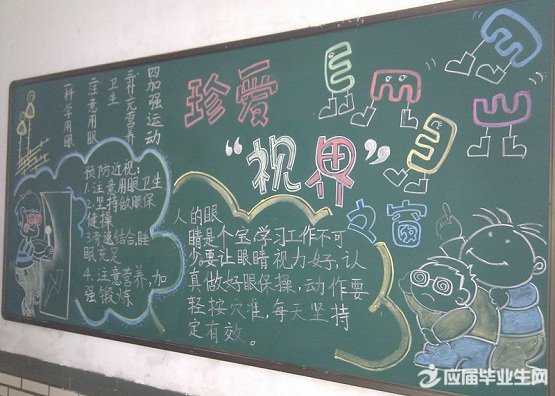 一科学用眼
二注意用眼
卫生
三补充营养
四加强运动
珍爱
“视界”
之窗
预防近视：
1.注意用眼卫生
2.坚持做眼保
健操
3.劳逸结合睡
眠充足
4.注意营养，加
强锻炼
人的眼
睛是个宝学习工作不可
少要让眼睛视力好，认
真做好眼保操，动作要
轻按穴准，每天坚持
定有效。
应届毕业生网